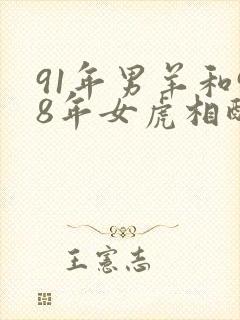 91年男羊和
8年女虎相
王憲志